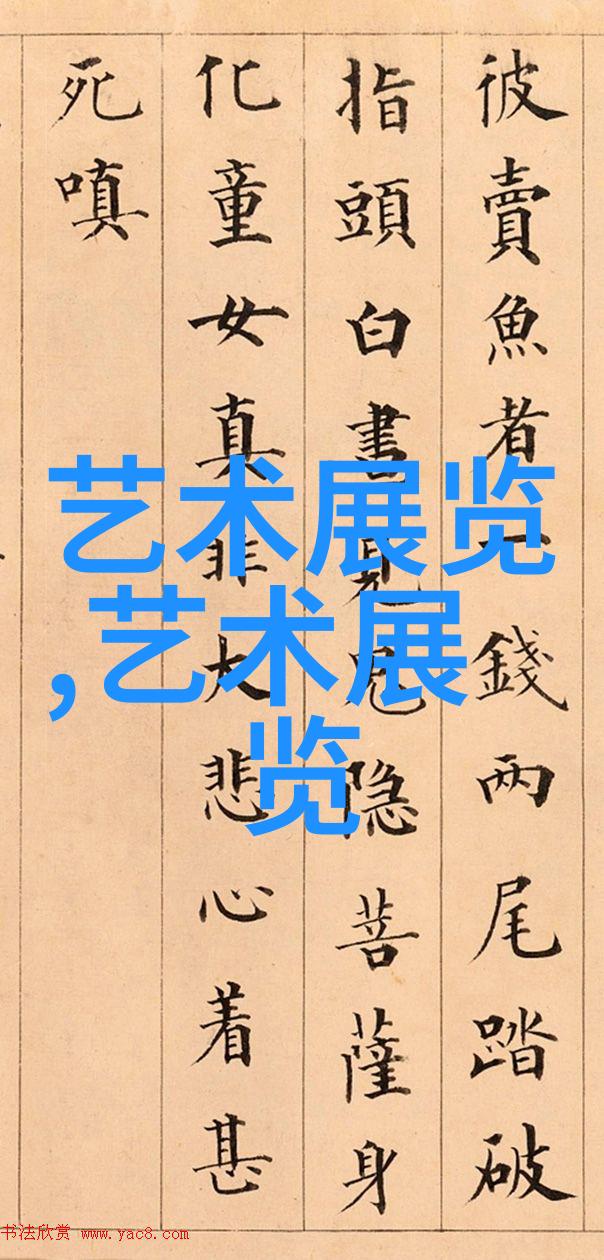 彼賣魚者一錢两尾踏破
指頭白晝見鬼隐菩薩身
化童女真非大悲心着甚
死嗔
艺术展览
,艺术展
览
书法欣赏 www.yac8.com